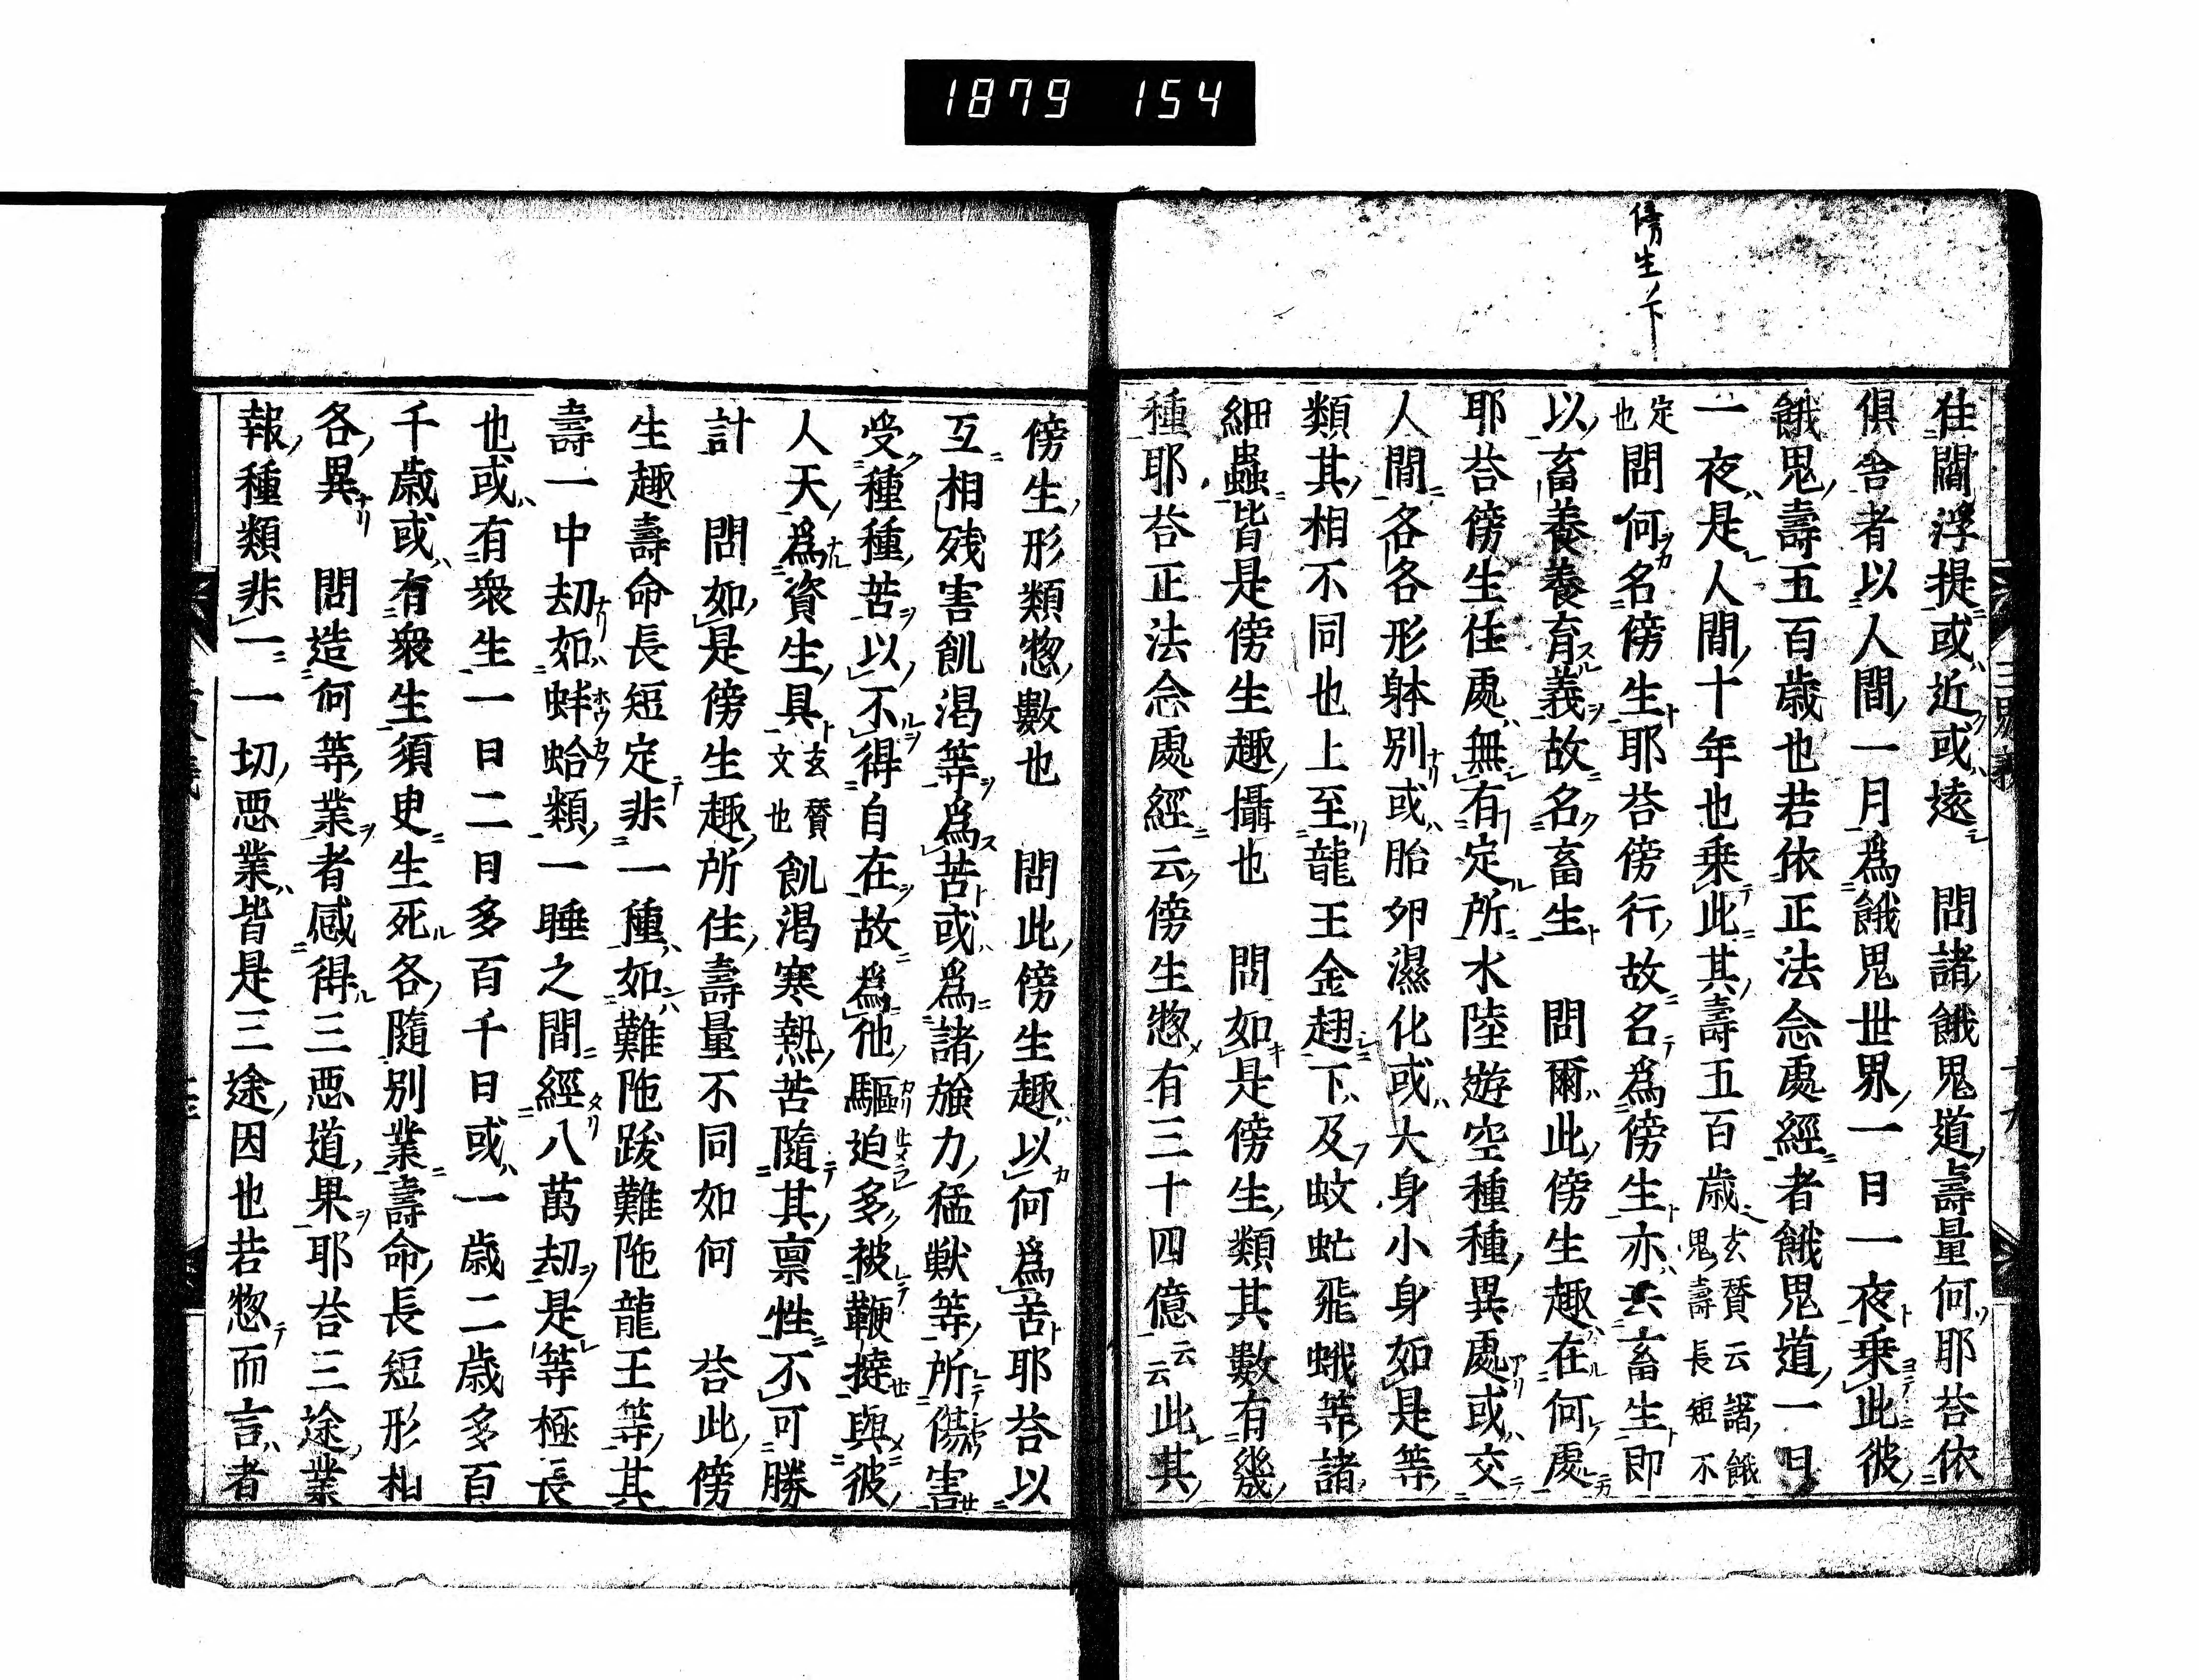 1879 154
傍生下
住閻浮提或近或遠　問諸餓鬼道壽量何耶荅依
俱舎者以人間一月爲餓鬼世界一日一夜乗此彼
餓鬼壽五百歳也若依正法念處經者餓鬼道一日
一夜是人間十年也乗此其壽五百歳玄賛云諸餓鬼壽長短不
定也問何名傍生耶荅傍行故名爲傍生亦云畜生即
以畜養養育義故名畜生　問爾此傍生趣在何處
耶荅傍生住處無有定所水陸遊空種種異處或交
人間各各形躰別或胎卵濕化或大身小身如是等
類其相不同也上至龍王金翅下及蚊虻飛蛾等諸
細蟲皆是傍生趣攝也　問如是傍生類其數有幾
種耶荅正法念處經云傍生惣有三十四億云云此其
傍生形類惣數也　問此傍生趣以何爲苦耶荅以
互相残害飢渇等爲苦或爲諸強力猛獣等所傷害
受種種苦以不得自在故爲他驅迫多被鞭撻與彼
人天爲資生具玄賛文也飢渇寒熱苦隨其禀性不可勝
計　問如是傍生趣所住壽量不同如何　荅此傍
生趣壽命長短定非一種如難陁跋難陁龍王等其
壽一中劫如蚌蛤類一睡之間經八萬劫是等極長
也或有衆生一日二日多百千日或一歳二歳多百
千歳或有衆生須臾生死各隨別業壽命長短形相
各異　問造何等業者感得三惡道果耶荅三途業
報種類非一一切惡業皆是三途因也若惣而言者